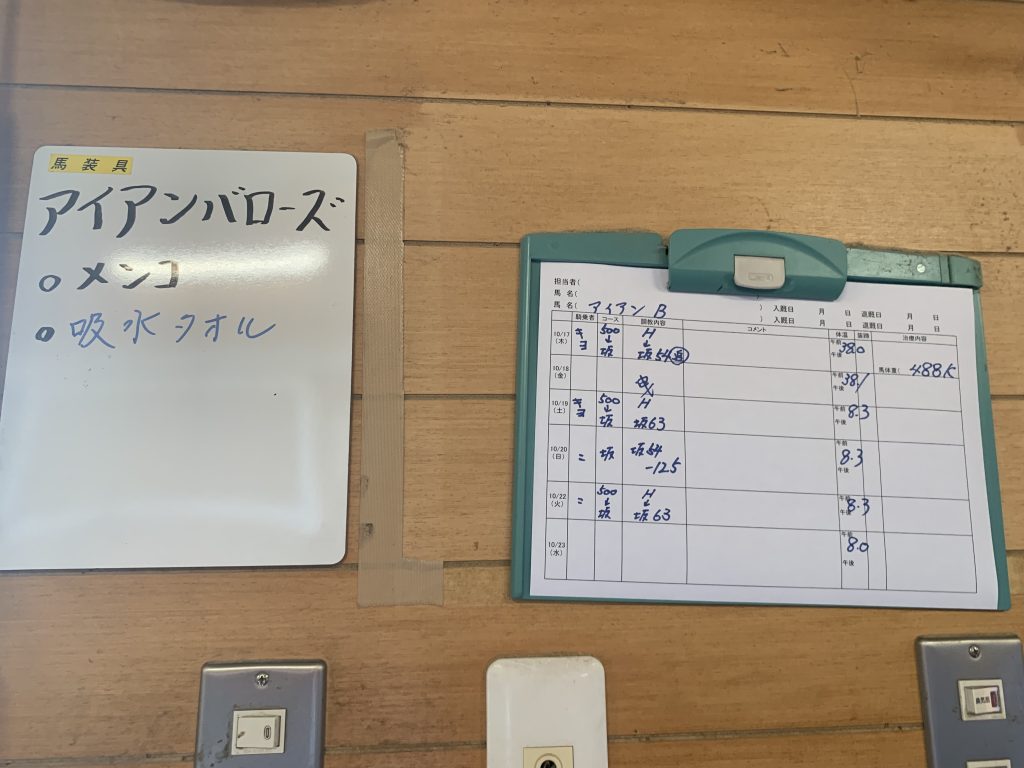 馬装具
アイアンバローズ
○メンコ
○吸水タオル
担当者(
馬 名( )入厩日 月 日 退厩日 月 日
馬 名( アイアンB )入厩日 月 日 退厩日 月 日
騎乗者 コース 調教内容 コメント 体温 治療内容
10/17(木) キヨ 500↓坂 H↓坂54 午前 38.0 午後
10/18(金) 午前 38.1 午後 馬体重( 488K
10/19(土) キヨ 500↓坂 H↓坂63 午前 8.3 午後
10/20(日) 〃 坂 坂54-12.5 午前 8.3 午後
10/22(火) 〃 500↓坂 H↓坂63 午前 8.3 午後
10/23(水) 午前 8.0 午後
換気扇